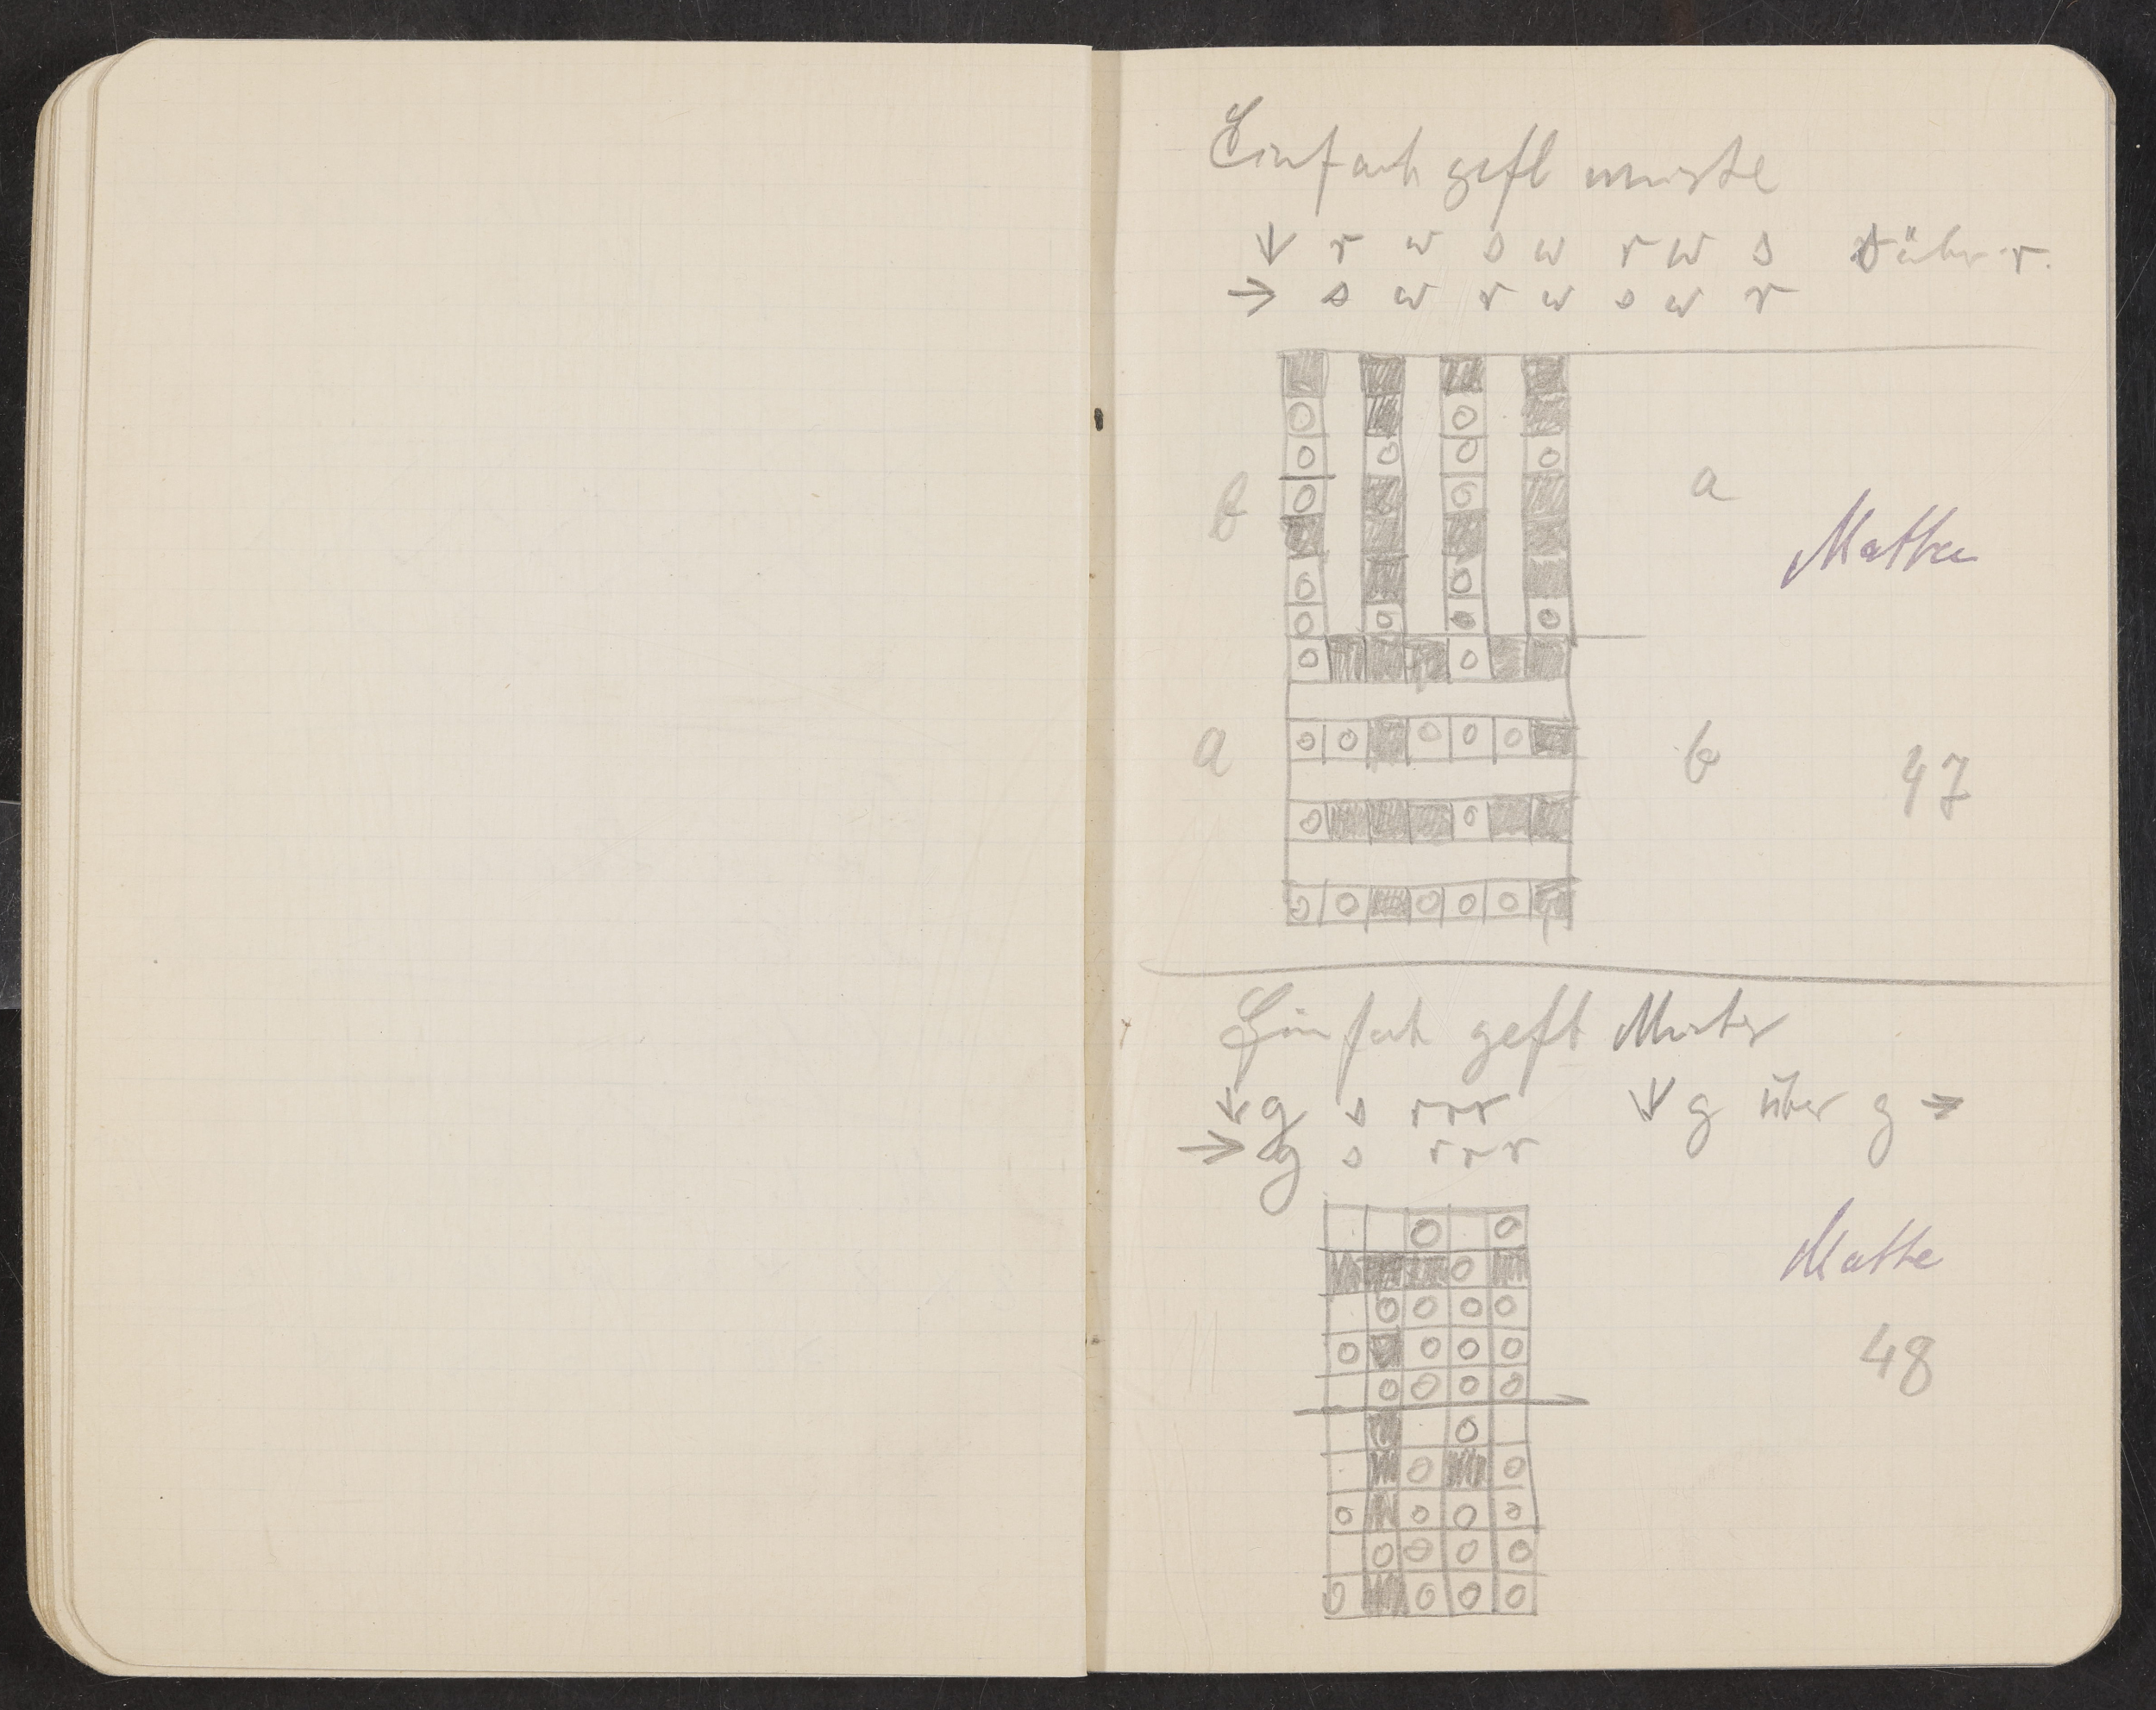 Einfach gefl muste
↓ r w s w r w s s über r.
→ s w r w s w r
b a
Matte
a b 47
Einfach gefl Muster
↓ g s r r r ↓ g über g →
→ g s r r r
Matte
48